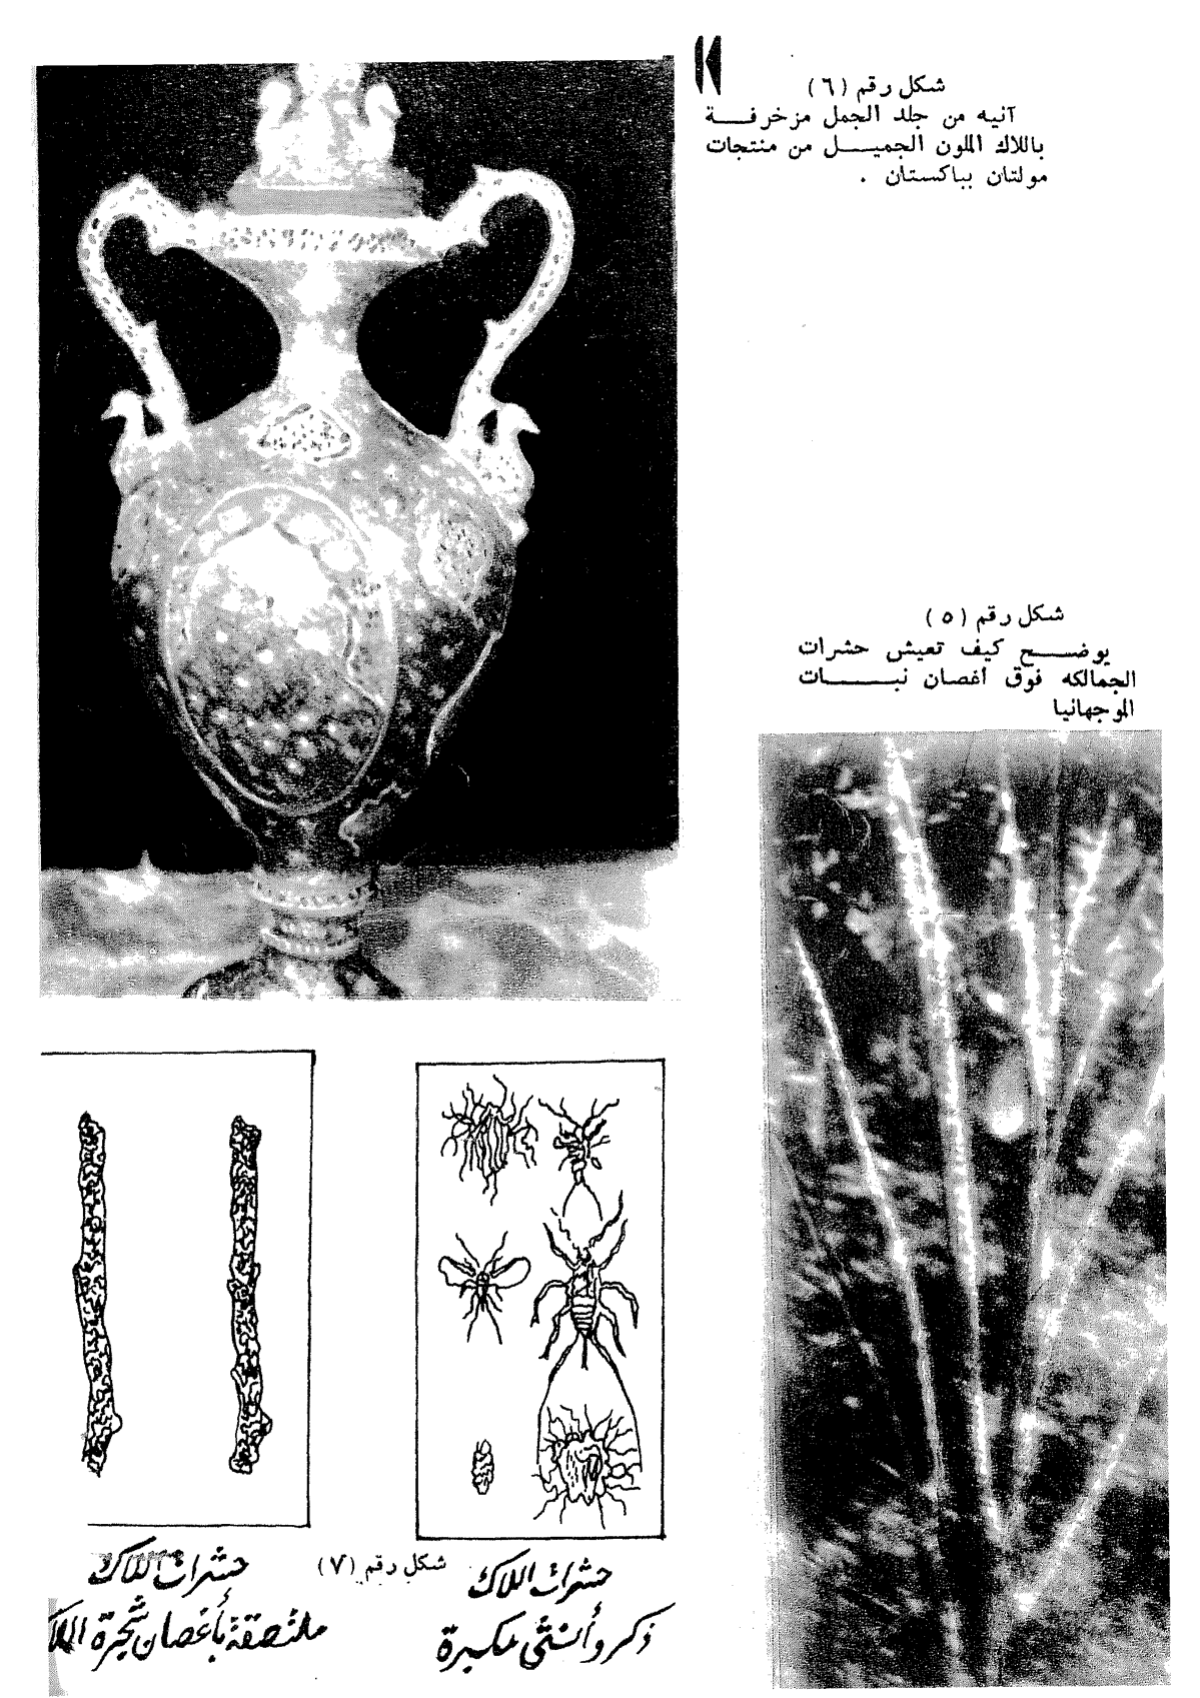 شكل رقم (٦)
آنيه من جلد الجمل مزخرفة
باللاك الملون الجميل من منتجات
مولتان بباكستان .
شكل رقم (٥)
يوضح كيف تعيش حشرات
الجمالكه فوق أغصان نبات
الموجهانيا
شكل رقم (٧)
حشرات اللاك
ذكر وأنثى مكبرة
حشرات اللاك
ملتصقة بأغصان شجرة